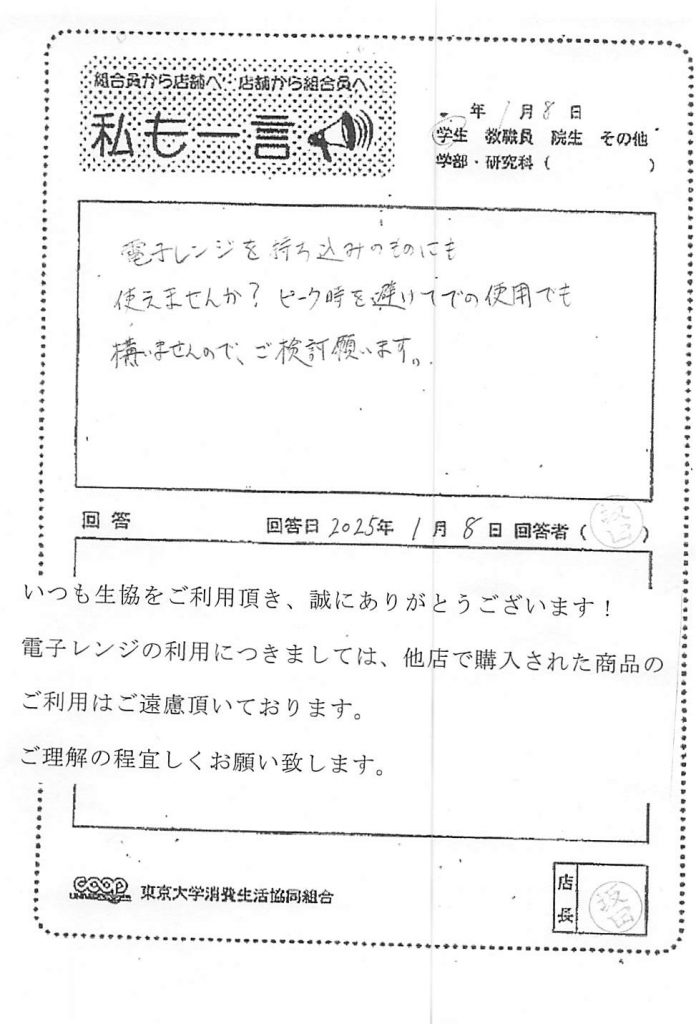 組合員から店舗へ・店舗から組合員へ
私も一言
年 1月 8日
学生 教職員 院生 その他
学部・研究科 ( )
電子レンジを持ち込みのものにも
使えませんか? ピーク時を避けてでの使用でも
構いませんので、ご検討願います。
回答 回答日 2025年 1月 8日 回答者 ( )
いつも生協をご利用頂き、誠にありがとうございます!
電子レンジの利用につきましては、他店で購入された商品の
ご利用はご遠慮頂いております。
ご理解の程宜しくお願い致します。
coop 東京大学消費生活協同組合
店長